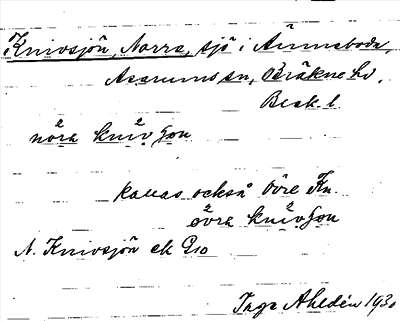 Knivsjön, Norra, sjö i Ämneboda,
Asarums sn, Bräkne hd,
Blek. l
nöra knivʃon
kallas också Övre Kn.
övra knivʃon
N. Knivsjön ek
Inga Ahldén 1930